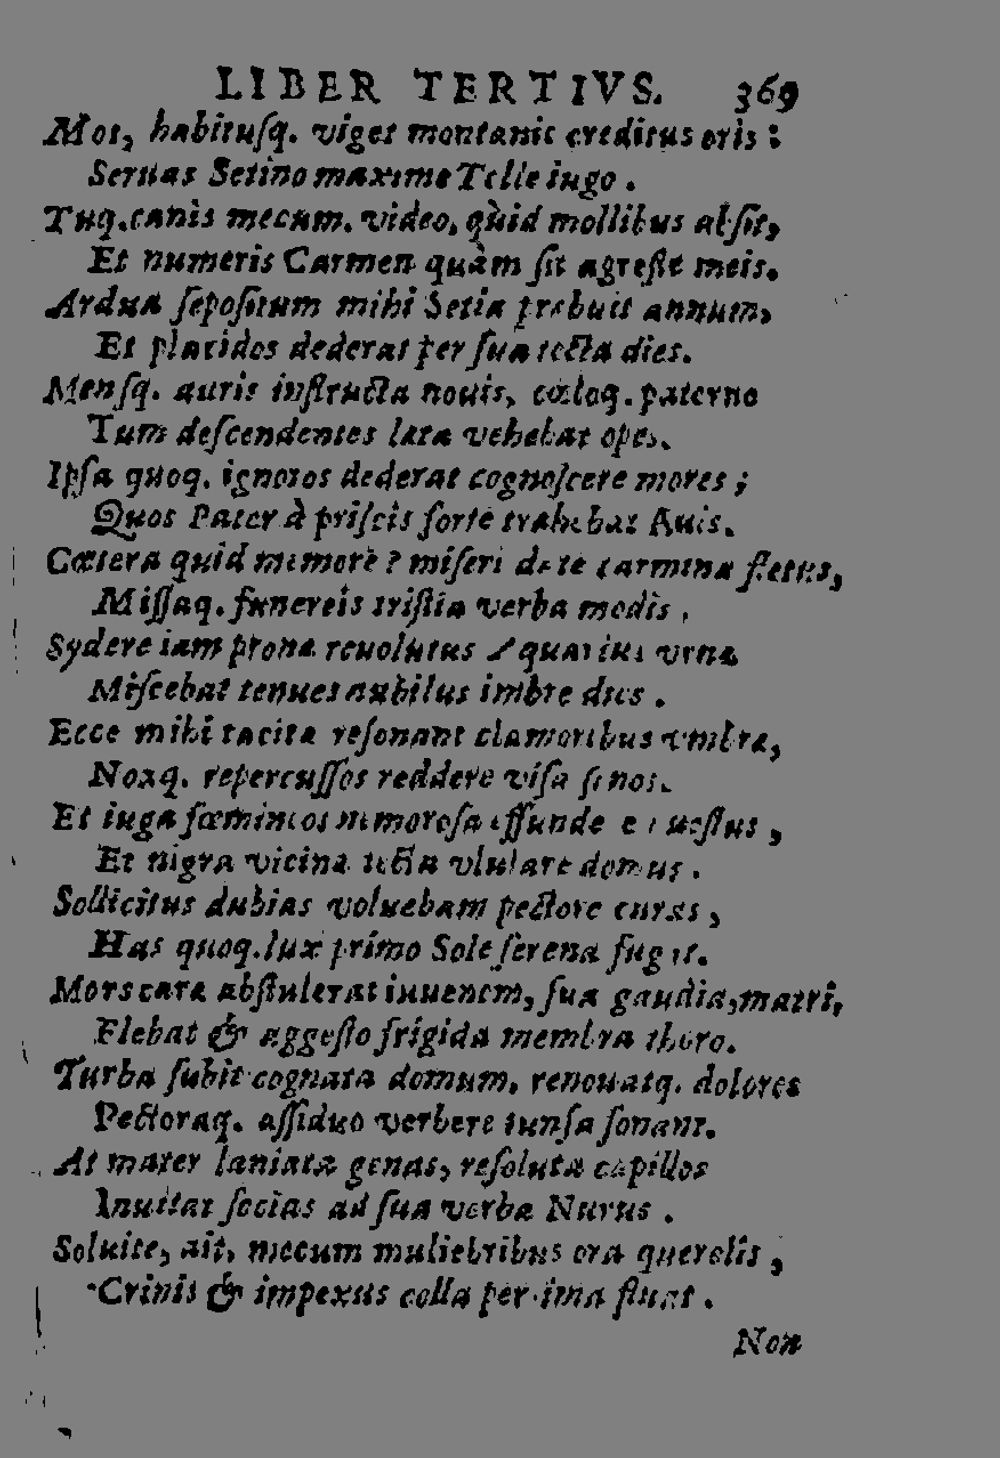 LIBER TERTIVS. 369
Mos, habituſq. viget montanis creditus oris:
Seruas Setino maxime Telle iugo.
Tuq. canis mecum. video, quid mollibus abſit,
Et numeris Carmen quàm ſit agreſte meis.
Ardua ſepoſitum mihi Setia præbuit annum,
Et placidos dederat per ſua tecta dies.
Menſq. auris inſtructa nouis, cœloq. paterno
Tum deſcendentes lata vehebat opes.
Ipſa quoq. ignotos dederat cognoſcere mores;
Quos Pater à priſcis forte trahebat Auis.
Cœtera quid memorē? miſeri date carmina fletus,
Miſſaq. funereis triſtia verba modis.
Sydere iam prona reuolutus Aquarius vrna
Miſcebat tenues nubilus imbre dies.
Ecce mihi tacitæ reſonant clamoribus vmbræ,
Noxq. repercuſſos reddere viſa ſonos.
Et iuga fœmineos nemoroſa effundere queſtus,
Et nigra vicinæ tecta vlulare domus.
Sollicitus dubias voluebam pectore curas,
Has quoq. lux primo Sole ſerena fugit.
Mors cara abſtulerat iuuenem, ſua gaudia, matri,
Flebat & aggeſto frigida membra thoro.
Turba ſubit cognata domum, renouatq. dolores
Pectoraq. aſſiduo verbere tunſa ſonant.
At mater laniata genas, reſoluta capillos
Inuitat ſocias ad ſua verba Nurus.
Soluite, ait, mecum muliebribus ora querelis,
Crinis & impexus colla per ima fluat.
Non